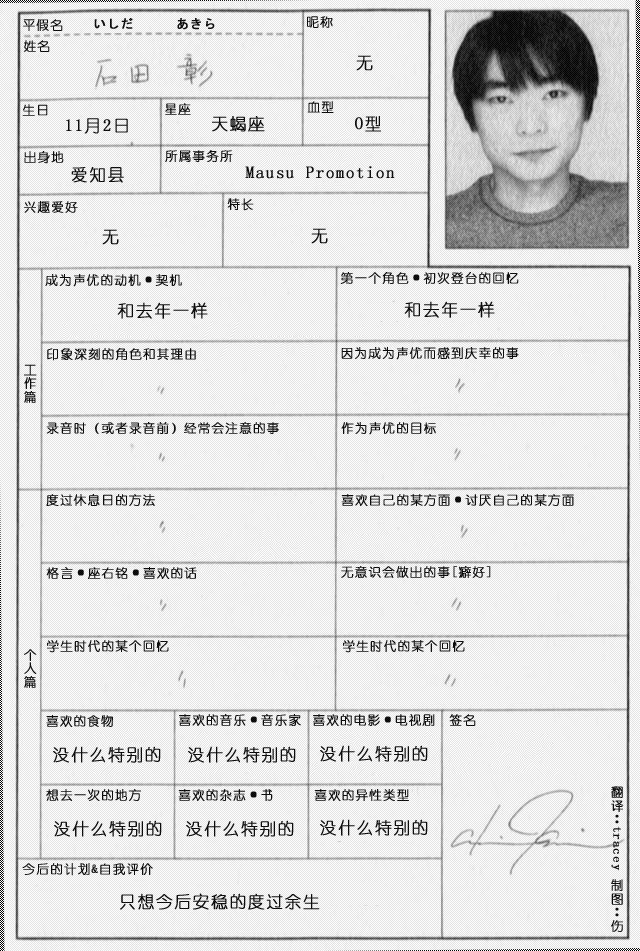 平假名 いしだ あきら
昵称
姓名
石田 彰
无
生日
11月2日
星座
天蝎座
血型
O型
出身地
爱知县
所属事务所
Mausu Promotion
兴趣爱好
无
特长
无
工作篇
成为声优的动机●契机
和去年一样
第一个角色●初次登台的回忆
和去年一样
印象深刻的角色和其理由
〃
因为成为声优而感到庆幸的事
〃
录音时（或者录音前）经常会注意的事
〃
作为声优的目标
〃
个人篇
度过休息日的方法
〃
喜欢自己的某方面●讨厌自己的某方面
〃
格言●座右铭●喜欢的话
〃
无意识会做出的事[癖好]
〃
学生时代的某个回忆
〃
学生时代的某个回忆
〃
喜欢的食物
没什么特别的
喜欢的音乐●音乐家
没什么特别的
喜欢的电影●电视剧
没什么特别的
签名
想去一次的地方
没什么特别的
喜欢的杂志●书
没什么特别的
喜欢的异性类型
没什么特别的
今后的计划&自我评价
只想今后安稳的度过余生
翻译:tracey 制图:伤